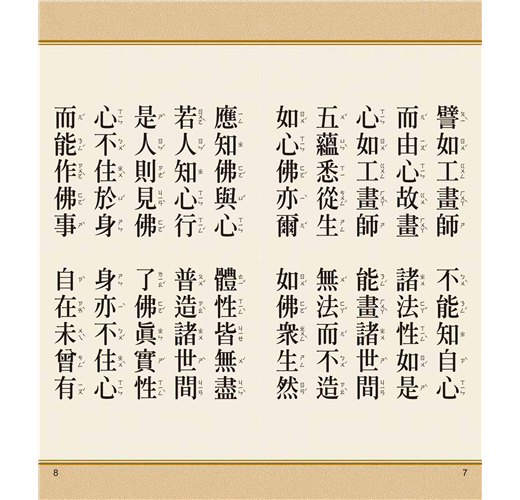 譬如工畫師 不能知自心
而由心故畫 諸法性如是
心如工畫師 能畫諸世間
五蘊悉從生 無法而不造
如心佛亦爾 如佛衆生然
7
應知佛與心 體性皆無盡
若人知心行 普造諸世間
是人則見佛 了佛眞實性
心不住於身 身亦不住心
而能作佛事 自在未曾有
8